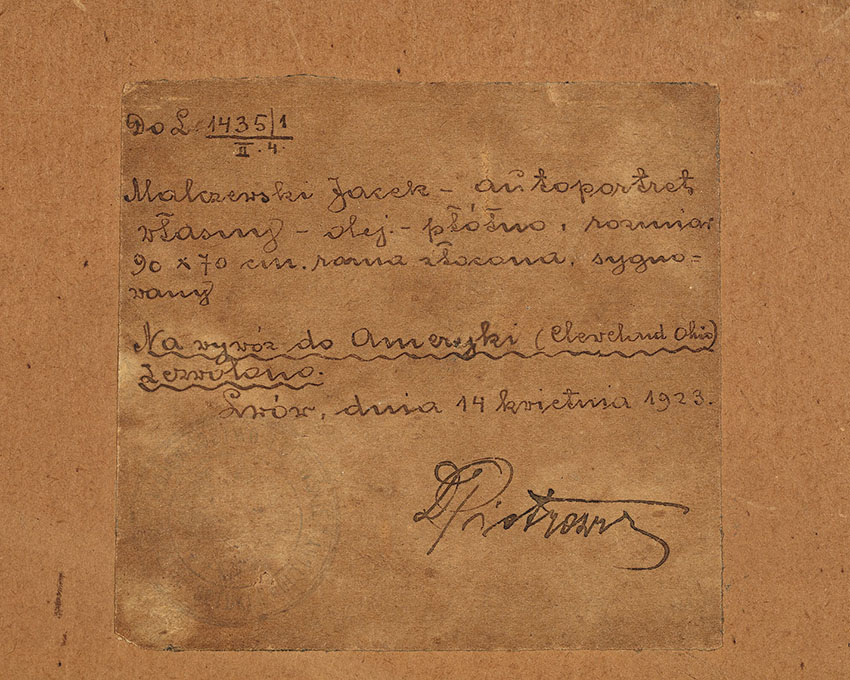 Do L. 1435/1
II. 4.
Malczewski Jacek - autoportret
własny - olej. - płótno, rozmiar
90 x 70 cm. rama złocona, sygno=
wany
Na wywóz do Ameryki (Cleveland Ohio)
zezwolono.
Lwów, dnia 14 kwietnia 1923.